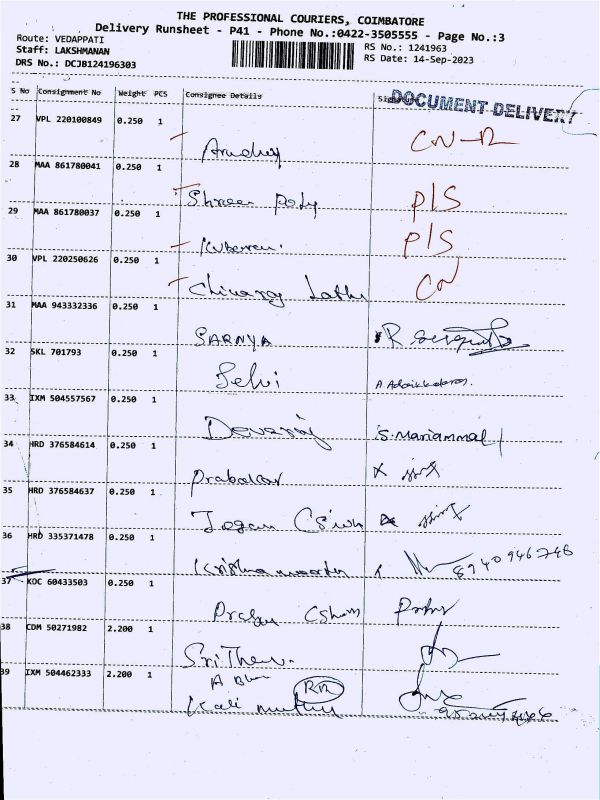 THE PROFESSIONAL COURIERS, COIMBATORE
Delivery Runsheet - P41 - Phone No.:0422-3505555 - Page No.:3
Route: VEDAPPATI
RS No.: 1241963
Staff: LAKSHMANAN
RS Date: 14-Sep-2023
DRS No.: DCJB124196303
S No Consignment No Weight PCS Consignee Details
DOCUMENT DELIVERY
27 VPL 220100849 0.250 1
CN-R
28 MAA 861780041 0.250 1
Shree P/S
29 MAA 861780037 0.250 1
P/S
30 VPL 220250626 0.250 1
CN
31 MAA 943332336 0.250 1
SARNYA R
32 SKL 701793 0.250 1
Selvi
33 IXM 504557567 0.250 1
Devaraj S. Mariammal
34 HRD 376584614 0.250 1
Prabakar
35 HRD 376584637 0.250 1
Jegan
36 HRD 335371478 0.250 1
Krishna moorthy 8940946746
37 KOC 60433503 0.250 1
38 CDM 50271982 2.200 1
39 IXM 504462333 2.200 1
Kali muthu